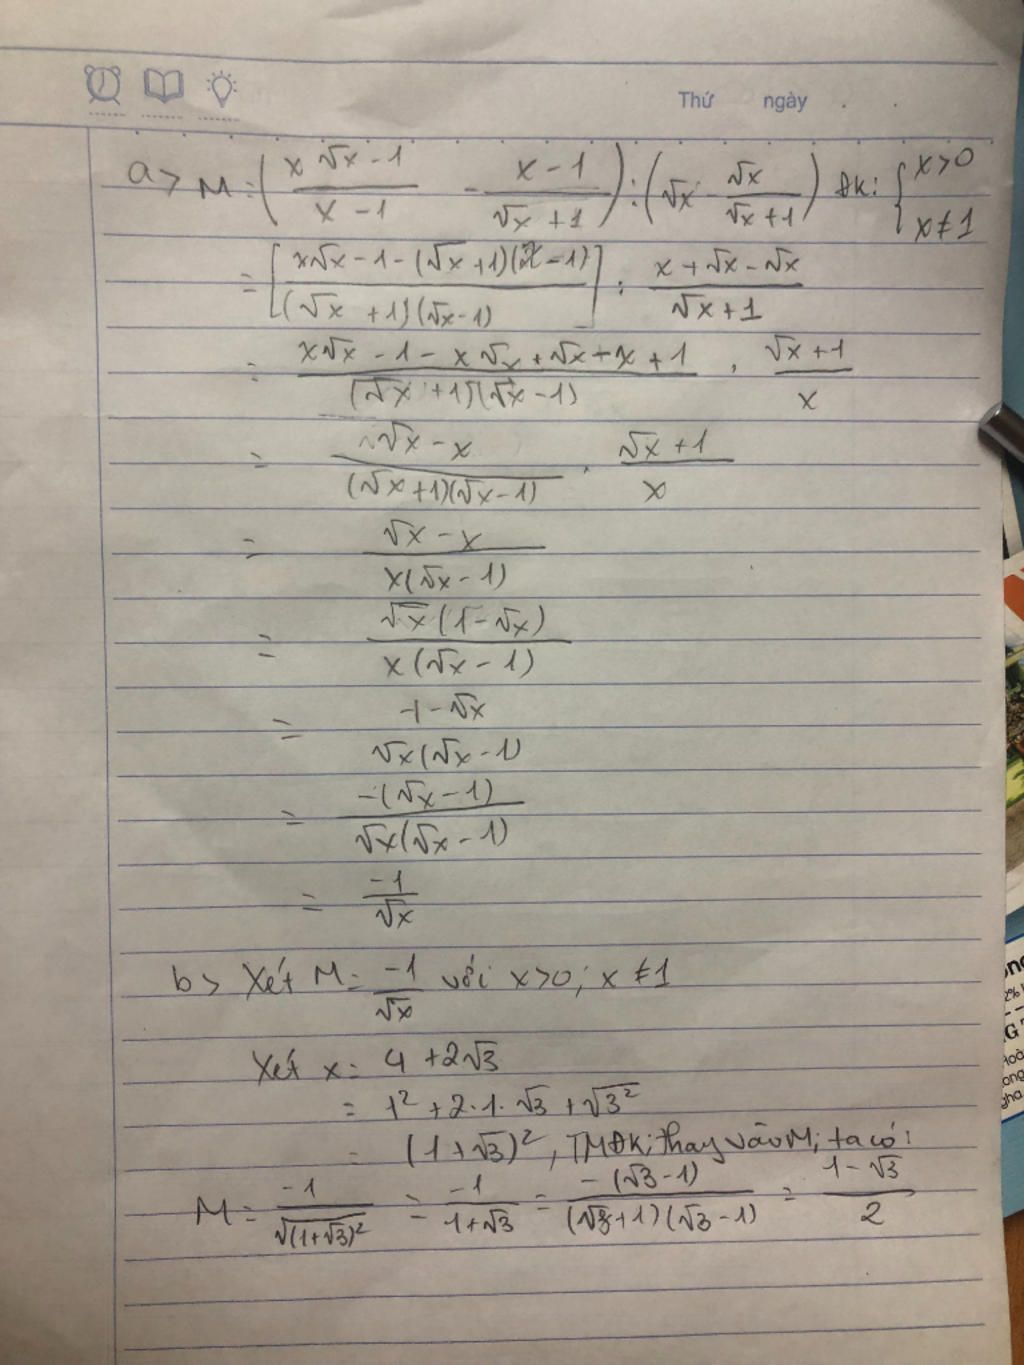 Thứ ngày
a> M = ( (x√x - 1)/(x - 1) - (x - 1)/(√x + 1) ) : ( √x - √x/(√x + 1) ) Đk: { x>0 x≠1
= [ (x√x - 1 - (√x + 1)(x - 1))/((√x + 1)(√x - 1)) ] : (x + √x - √x)/(√x + 1)
= (x√x - 1 - x√x + √x - x + 1)/((√x + 1)(√x - 1)) . (√x + 1)/x
= (√x - x)/((√x + 1)(√x - 1)) . (√x + 1)/x
= (√x - x)/(x(√x - 1))
= (√x(1 - √x))/(x(√x - 1))
= (1 - √x)/(√x(√x - 1))
= (-(√x - 1))/(√x(√x - 1))
= -1/√x
b> Xét M = -1/√x với x>0; x ≠ 1
Xét x = 4 + 2√3
= 1² + 2.1.√3 + √3²
= (1 + √3)², TMĐK; thay vào M; ta có:
M = -1/√(1+√3)² = -1/(1+√3) = -(√3 - 1)/((√3 + 1)(√3 - 1)) = (1 - √3)/2